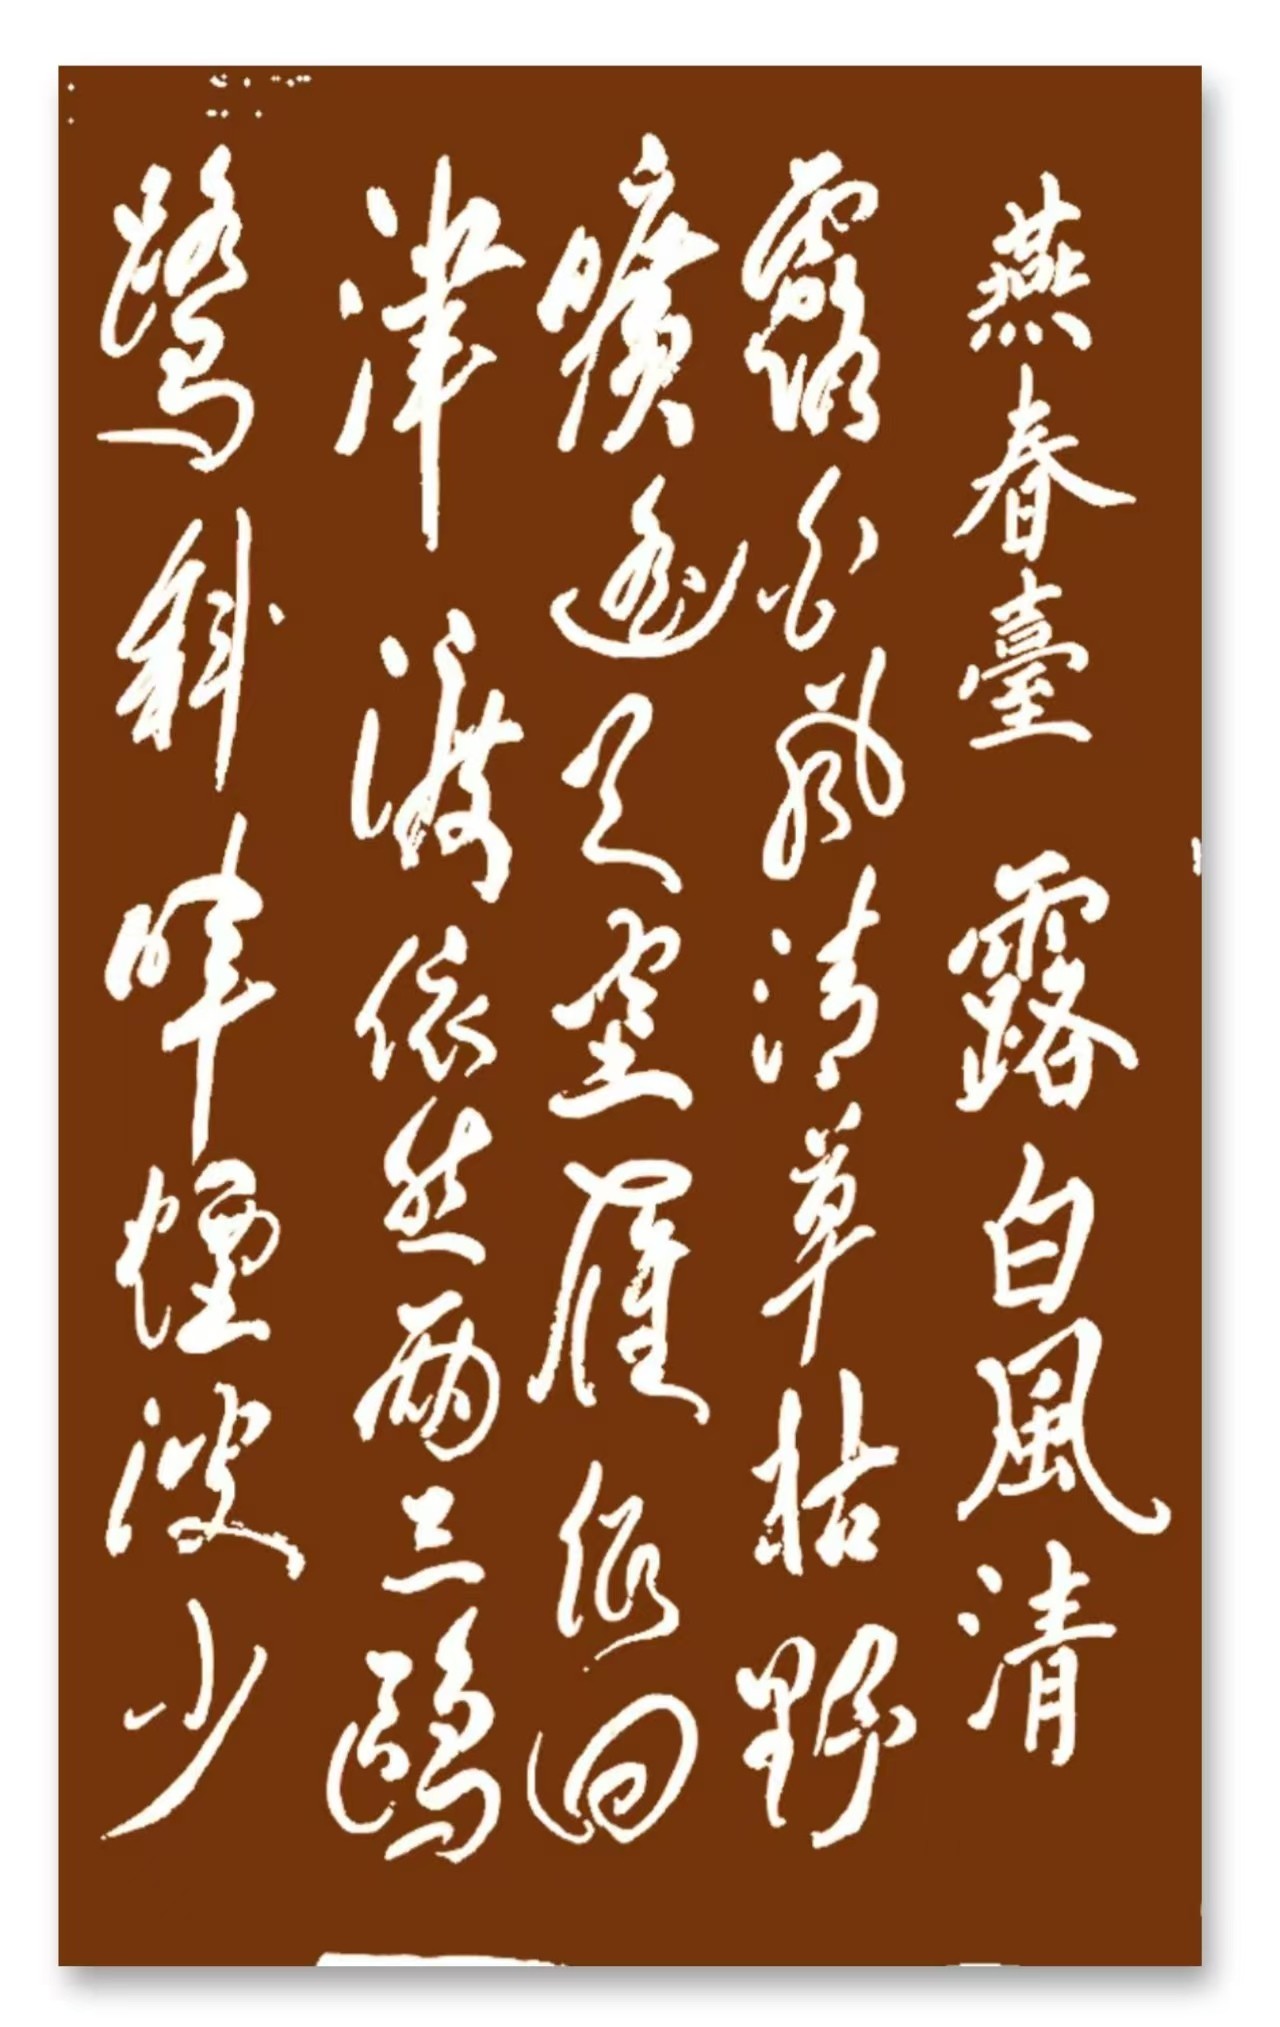 燕春臺 露白風清
露白風清草枯野
曠遙天空雁低回
津渡依然兩三鷗
鷺斜暉煙波少